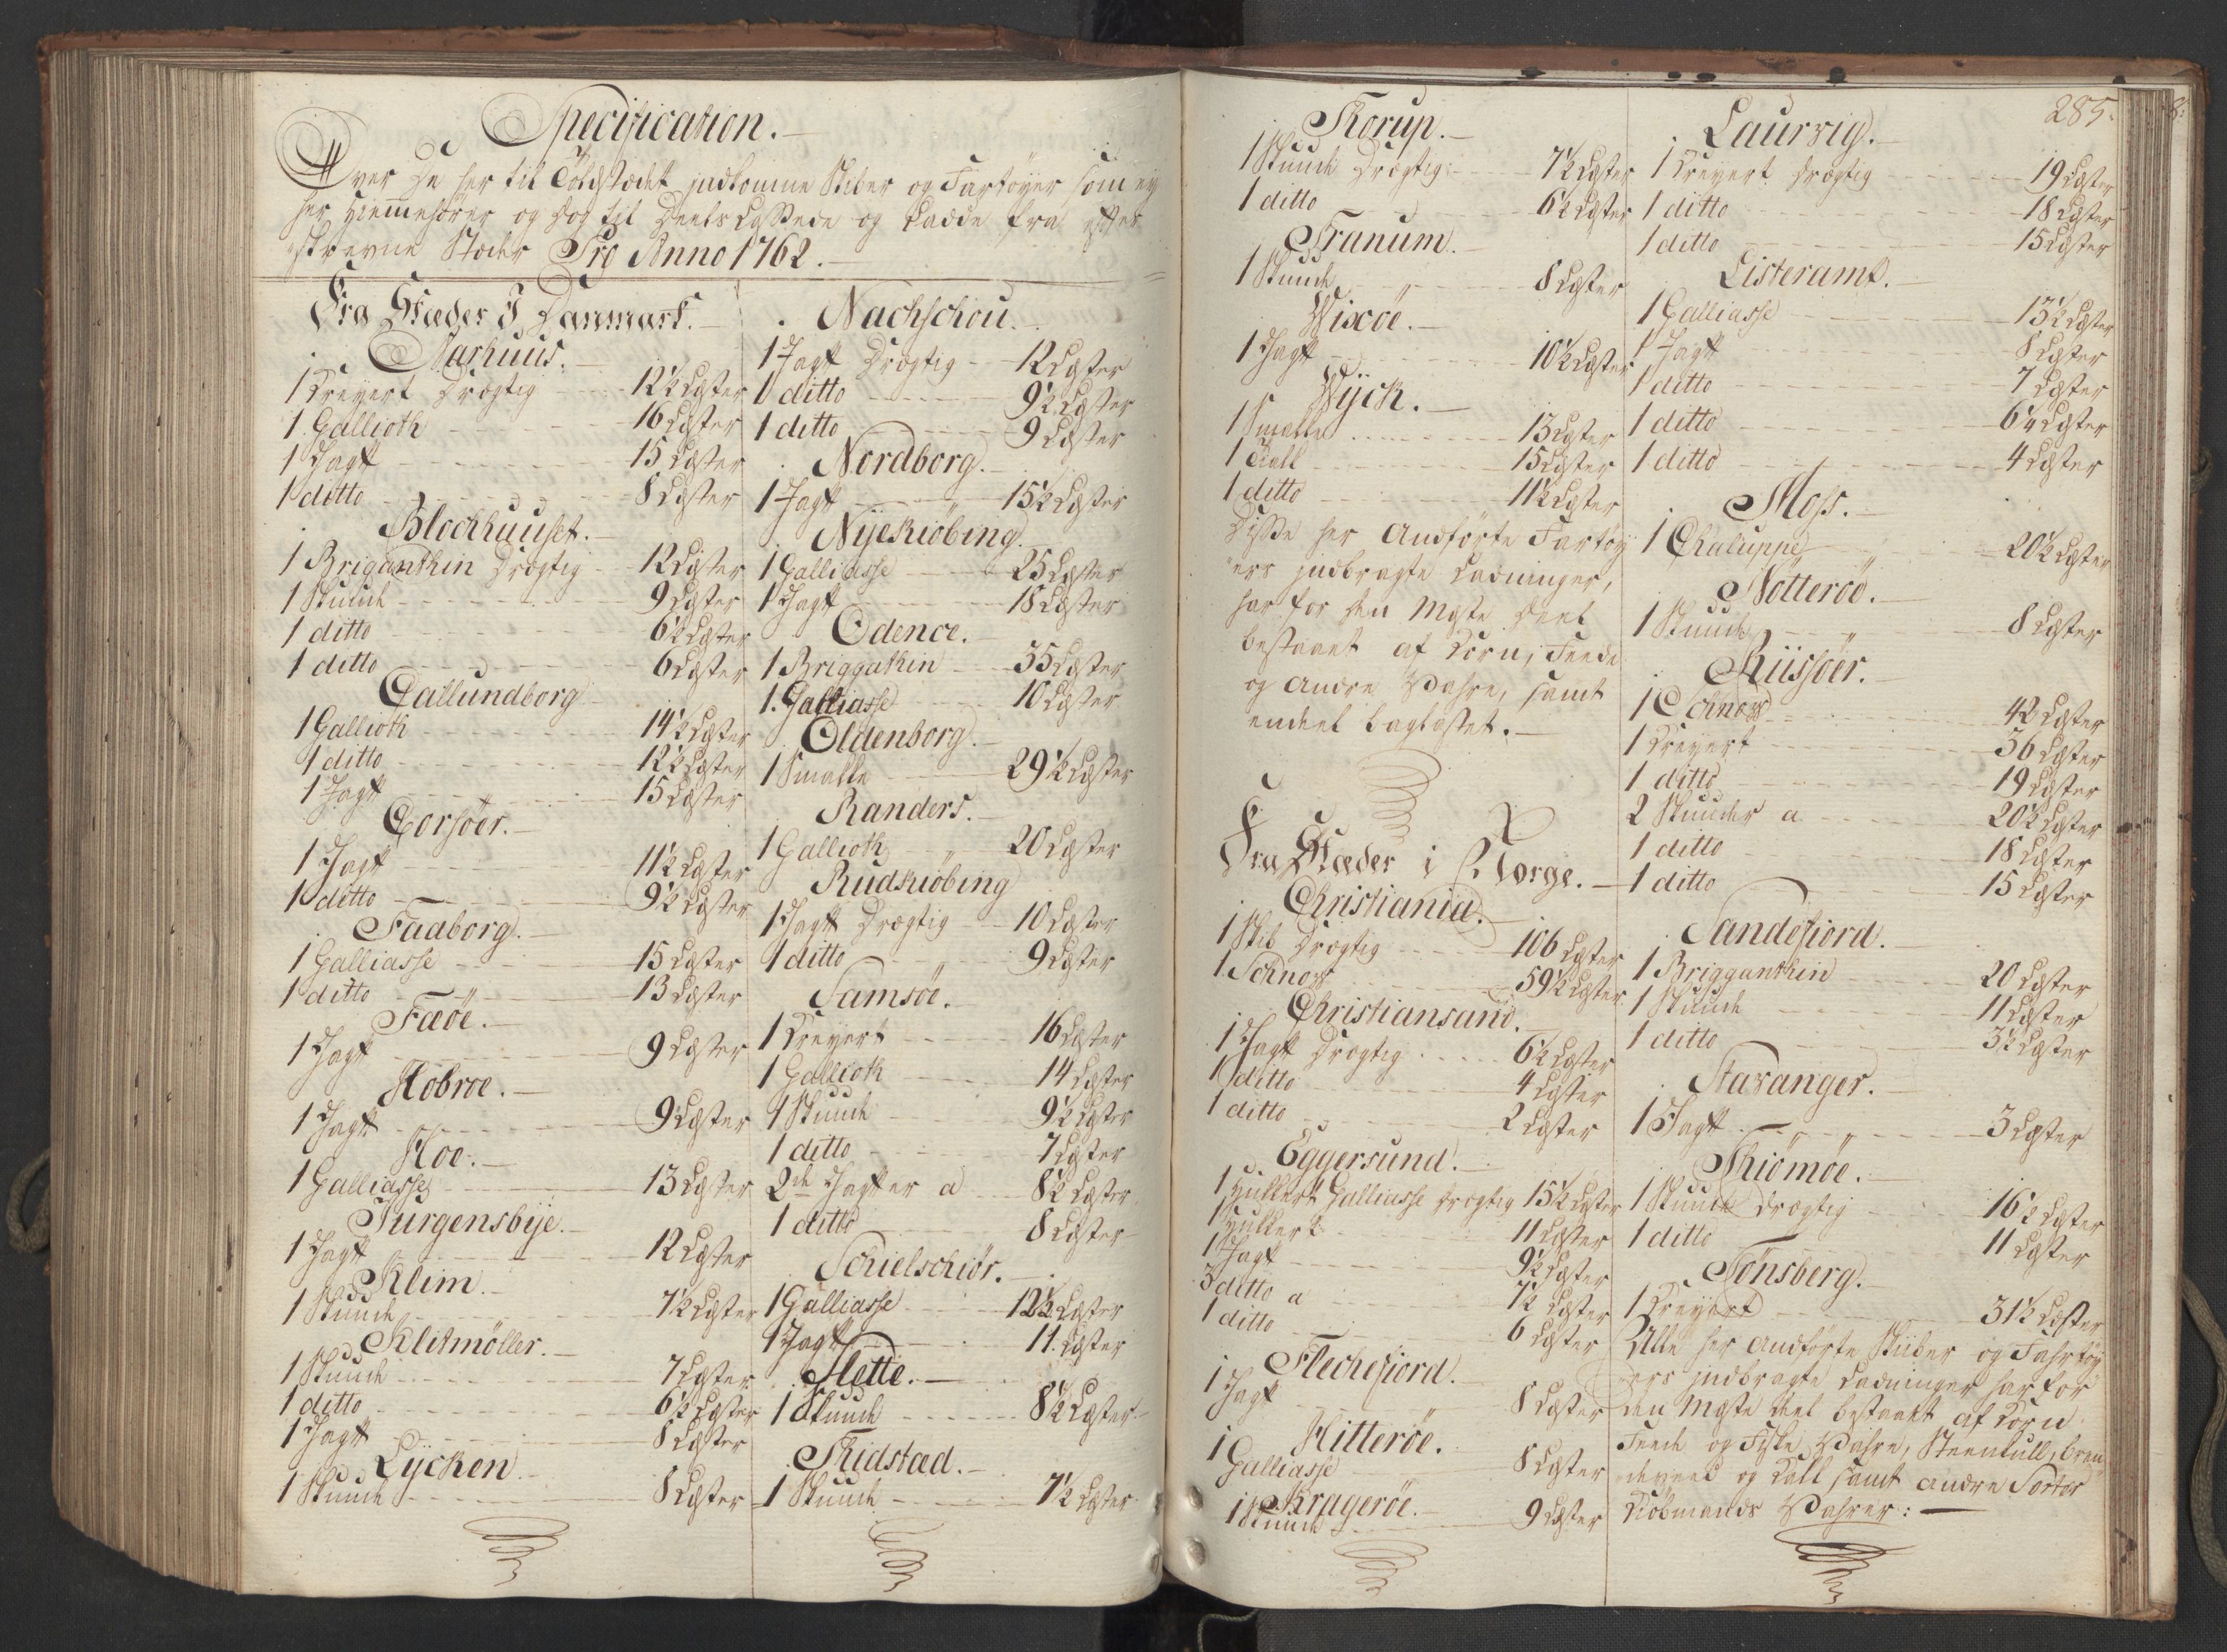 Specification.
Over De her til Toldstædet jndkomne Skiber og Fartøyer som ey
her Hiemmehører og dog til Deels Lossede og Ladde fra effter
skrevne Stæder Pro Anno 1762.
Fra Stæder I Danmark.
Aarhuus.
1 Kreyert Drægtig 12½ Læster
1 Gallioth 16 Læster
1 Jagt 15 Læster
1 ditto 8 Læster
Blochhuuset.
1 Briganthin Drægtig 12 Læster
1 Skuude 9 Læster
1 ditto 6½ Læster
1 ditto 6 Læster
Callundborg
1 Gallioth 14½ Læster
1 ditto 12½ Læster
1 Jagt 15 Læster
Corsöer.
1 Jagt 11½ Læster
1 ditto 9½ Læster
Faaborg.
1 Galliasse 15 Læster
1 ditto 13 Læster
Fæöe.
1 Jagt 9 Læster
Hobroe.
1 Jagt 9 Læster
Hoe.
1 Galliasse 13 Læster
Jurgensbye.
1 Jagt 12 Læster
Klim.
1 Skuude 7½ Læster
Klitmöller.
1 Skuude 7 Læster
1 ditto 6½ Læster
1 Jagt 8 Læster
Lycken
1 Skuude 8 Læster
Nachschou.
1 Jagt Drægtig 12 Læster
1 ditto 9½ Læster
1 ditto 9 Læster
Nordborg.
1 Jagt 15½ Læster
Nyekiöbing.
1 Galliasse 25 Læster
1 Jagt 18 Læster
Odence.
1 Briggathin 35 Læster
1. Galliasse 10 Læster
Oldenborg.
1 Smakke 29½ Læster
Randers.
1 Gallioth 20 Læster
Rudkiöbing
1 Jagt Drægtig 10 Læster
1 ditto 9 Læster
Samsöe.
1 Kreyert 16 Læster
1 Gallioth 14 Læster
1 Skuude 9½ Læster
1 ditto 7 Læster
2de Jagter a 8½ Læster
1 ditto 8 Læster
Schielschiör.
1 Galliasse 12½ Læster
1 Jagt 11. Læster
Slette.
1 Skuude 8½ Læster
Thidstad.
1 Skuude 7½ Læster
285.
Thorup.
1 Skuude Drægtig 7½ Læster
1 ditto 6½ Læster
Tranum.
1 Skuude 8 Læster
Wixöe.
1 Jagt 10½ Læster
Wyck.
1 Smakke 13 Læster
1 15 Læster
1 ditto 11½ Læster
Disse her Andförte Fartøy
ers jndbragte Ladninger,
har for den Mæste Deel
bestaaet af Korn, Feede
og Andre Wahre, samt
endeel baglastet.
Fra Stæder i Norge.
Christiania.
1 Skib Drægtig 106 Læster
1. Schnow 59½ Læster
Christiansand.
1 Jagt Drægtig 6½ Læster
1 ditto 4 Læster
1 ditto 2 Læster
Eggersund.
1 Hukkert Galliasse drægtig 15½ Læster
1 Hukkert 11 Læster
1 Jagt 9½ Læster
3 ditto a 7½ Læster
1 ditto 6 Læster
Flechefiord.
1 Jagt 8 Læster
Hitteröe.
1 Galliasse 8 Læster
Krageröe.
1 Skuude 9 Læster
Laurvig.
1 Kreyert drægtig 19 Læster
1 ditto 18 Læster
1 ditto 15 Læster
Listeramt.
1 Galliasse 13½ Læster
1 Jagt 8 Læster
1 ditto 7 Læster
1 ditto 6¼ Læster
1 ditto 4 Læster
Moss.
1 Chaluppe 20½ Læster
Nötteröe.
1 Skuude 8 Læster
Riisöer.
1 Schnow 42 Læster
1 Kreyert 36 Læster
1 ditto 19 Læster
2 Skuuder a 20½ Læster
1 ditto 18 Læster
1 ditto 15 Læster
Sandefiord.
1 Brigganthin 20 Læster
1 Skuude 11 Læster
1 ditto 3½ Læster
Stavanger.
1 Jagt 3 Læster
Thiömöe.
1 Skuude Drægtig 16½ Læster
1 ditto 11 Læster
Tönsberg.
1 Kreyert 31½ Læster
Alle her Andförte Skiber og Fahrtöy
ers jndbragte Ladninger har for
den Mæste Deel bestaaet af Korn
Feede og Fiske Wahre, Steenkull, bræn
deveed og Kalk samt Andre Sorter
Kiöbmands Wahrer: